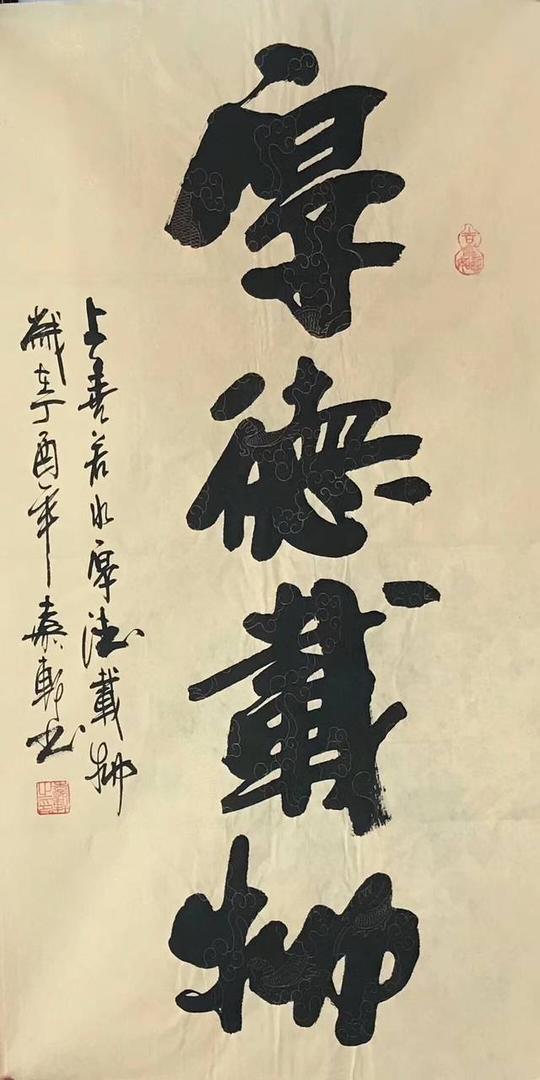 厚德載物
上善若水厚德載物
歲在丁酉年秦軒书